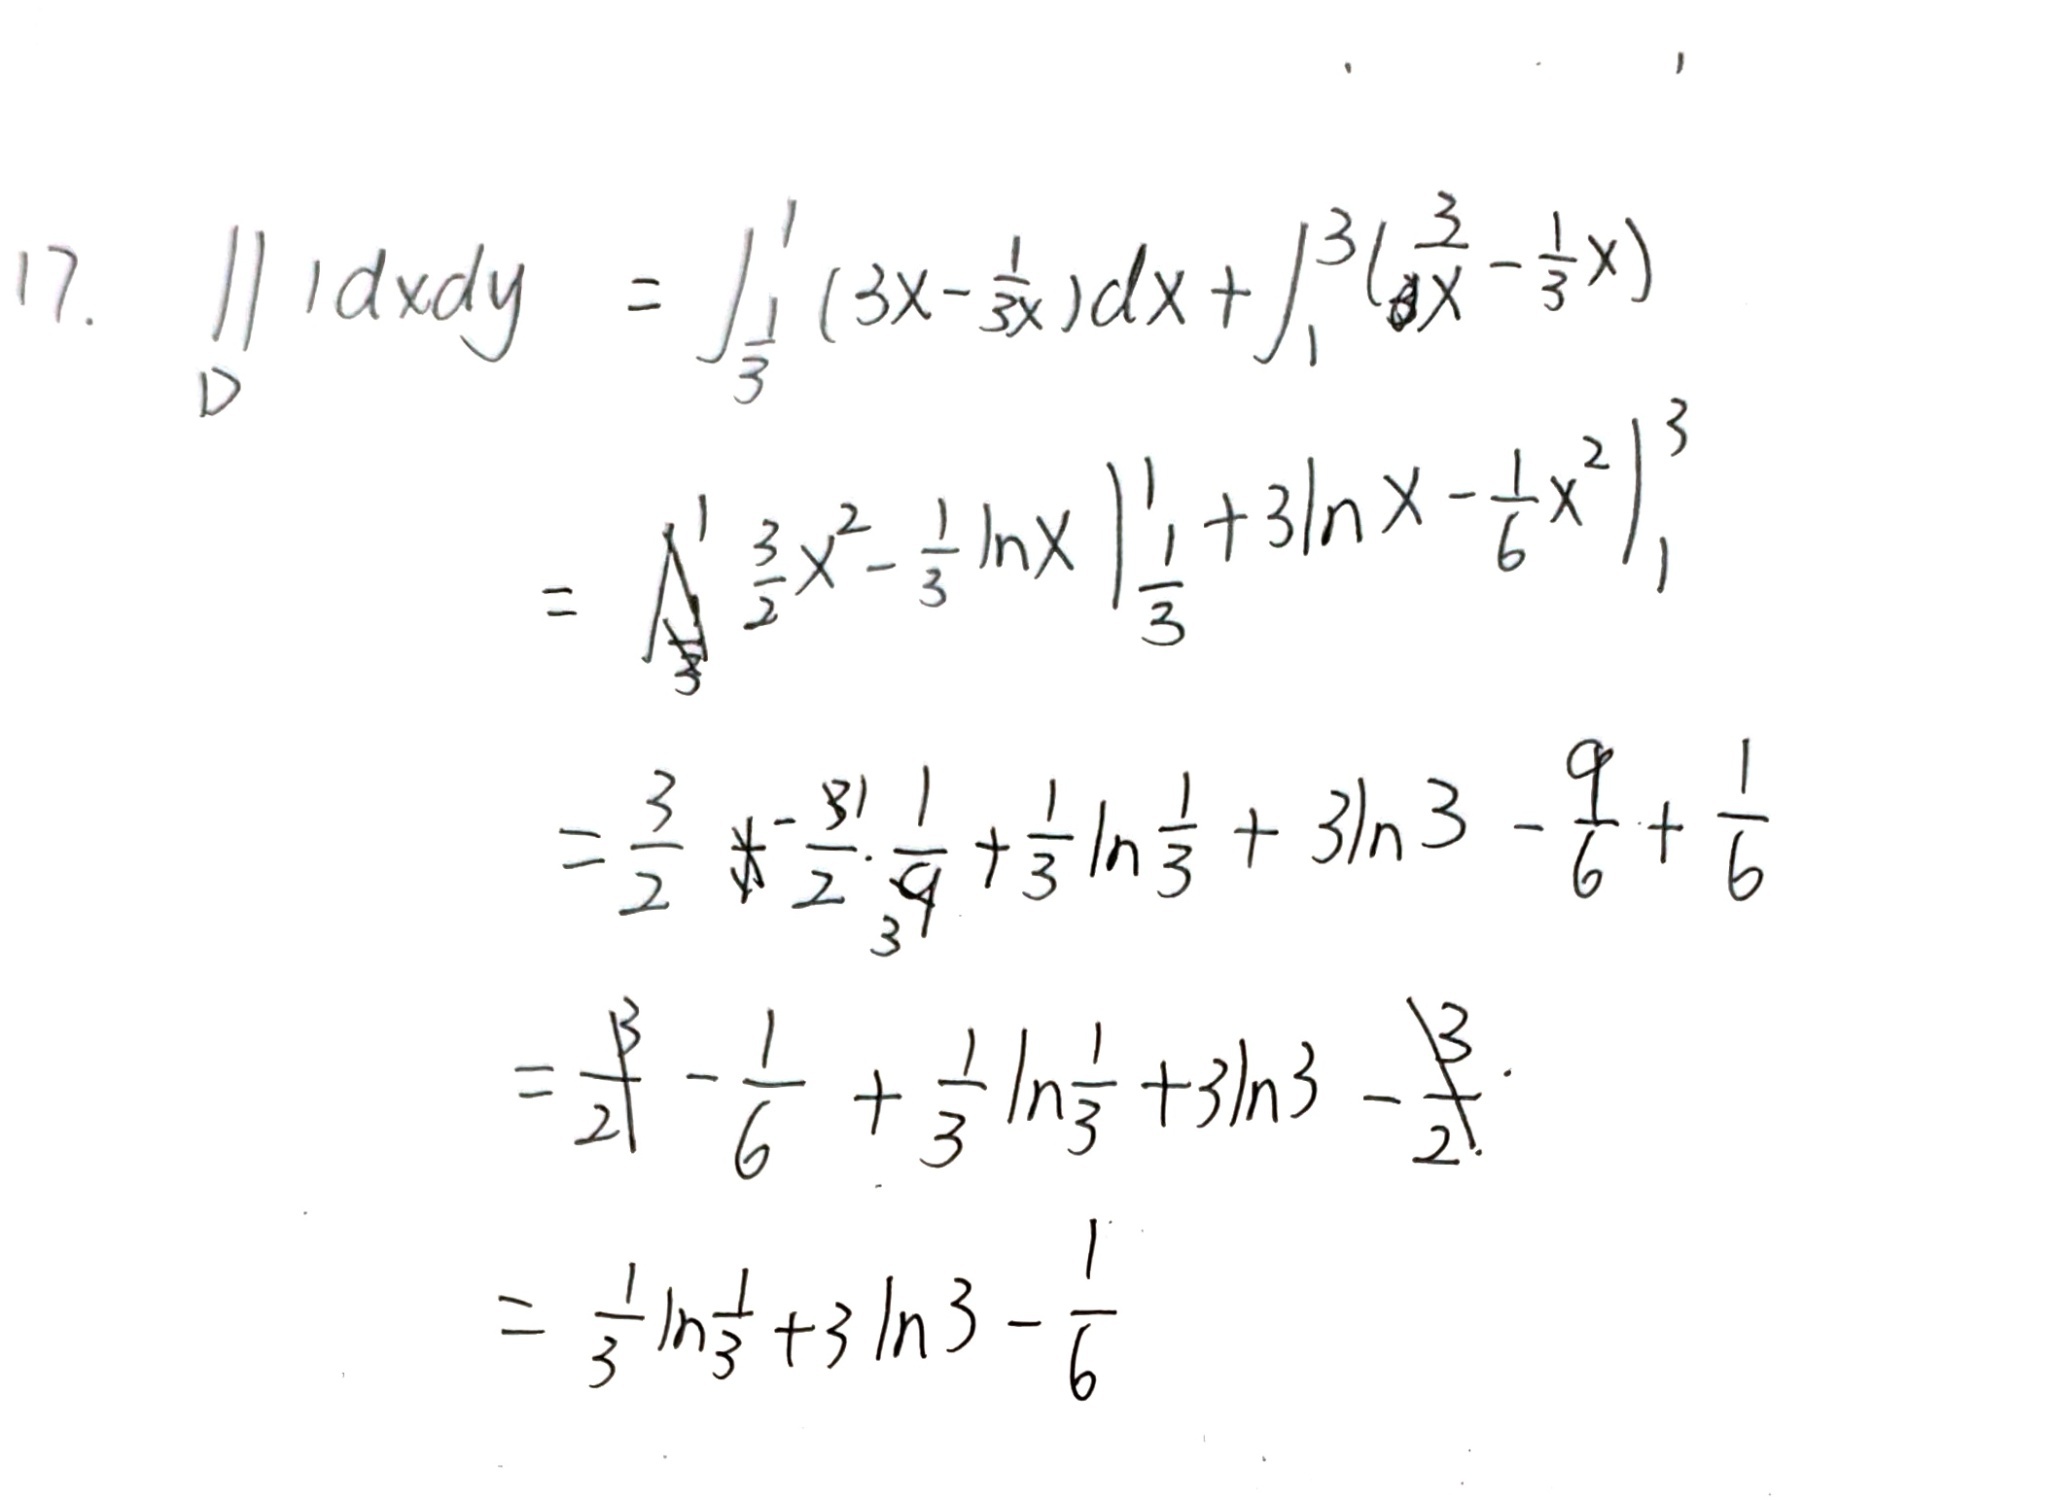 17. ∬_D 1dxdy = ∫_{1/3}^{1} (3x - 1/3x)dx + ∫_{1}^{3} (3/x - 1/3 x)
= 3/2 x² - 1/3 lnx |_{1/3}^{1} + 3lnx - 1/6 x² |_{1}^{3}
= 3/2 - 3/2 · 1/9 + 1/3 ln 1/3 + 3ln3 - 9/6 + 1/6
= 3/2 - 1/6 + 1/3 ln 1/3 + 3ln3 - 3/2
= 1/3 ln 1/3 + 3ln3 - 1/6